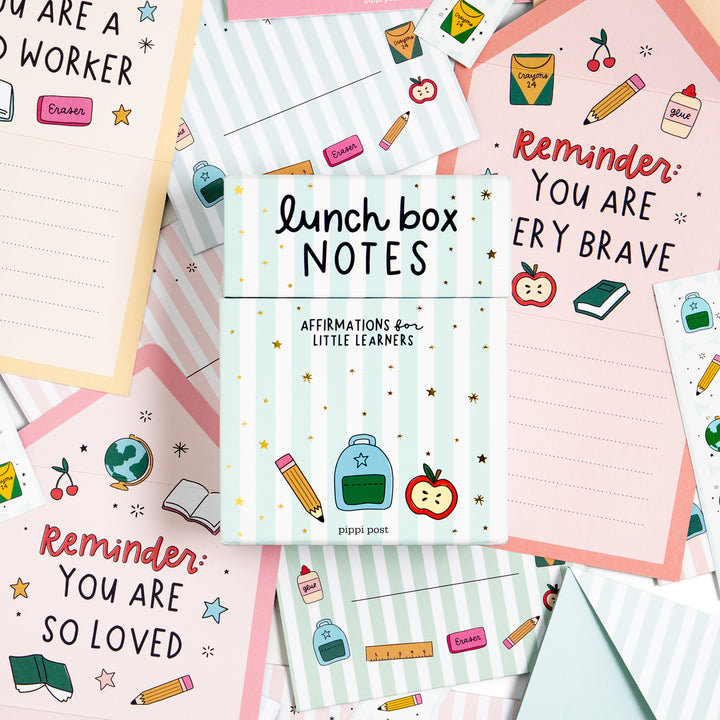 pippi post
YOU ARE A
WORKER
Eraser
Crayons
24
Eraser
Crayons
24
glue
Reminder:
YOU ARE
VERY BRAVE
lunch box
NOTES
AFFIRMATIONS for
LITTLE LEARNERS
pippi post
Reminder:
YOU ARE
SO LOVED
24
glue
Eraser
pippi post